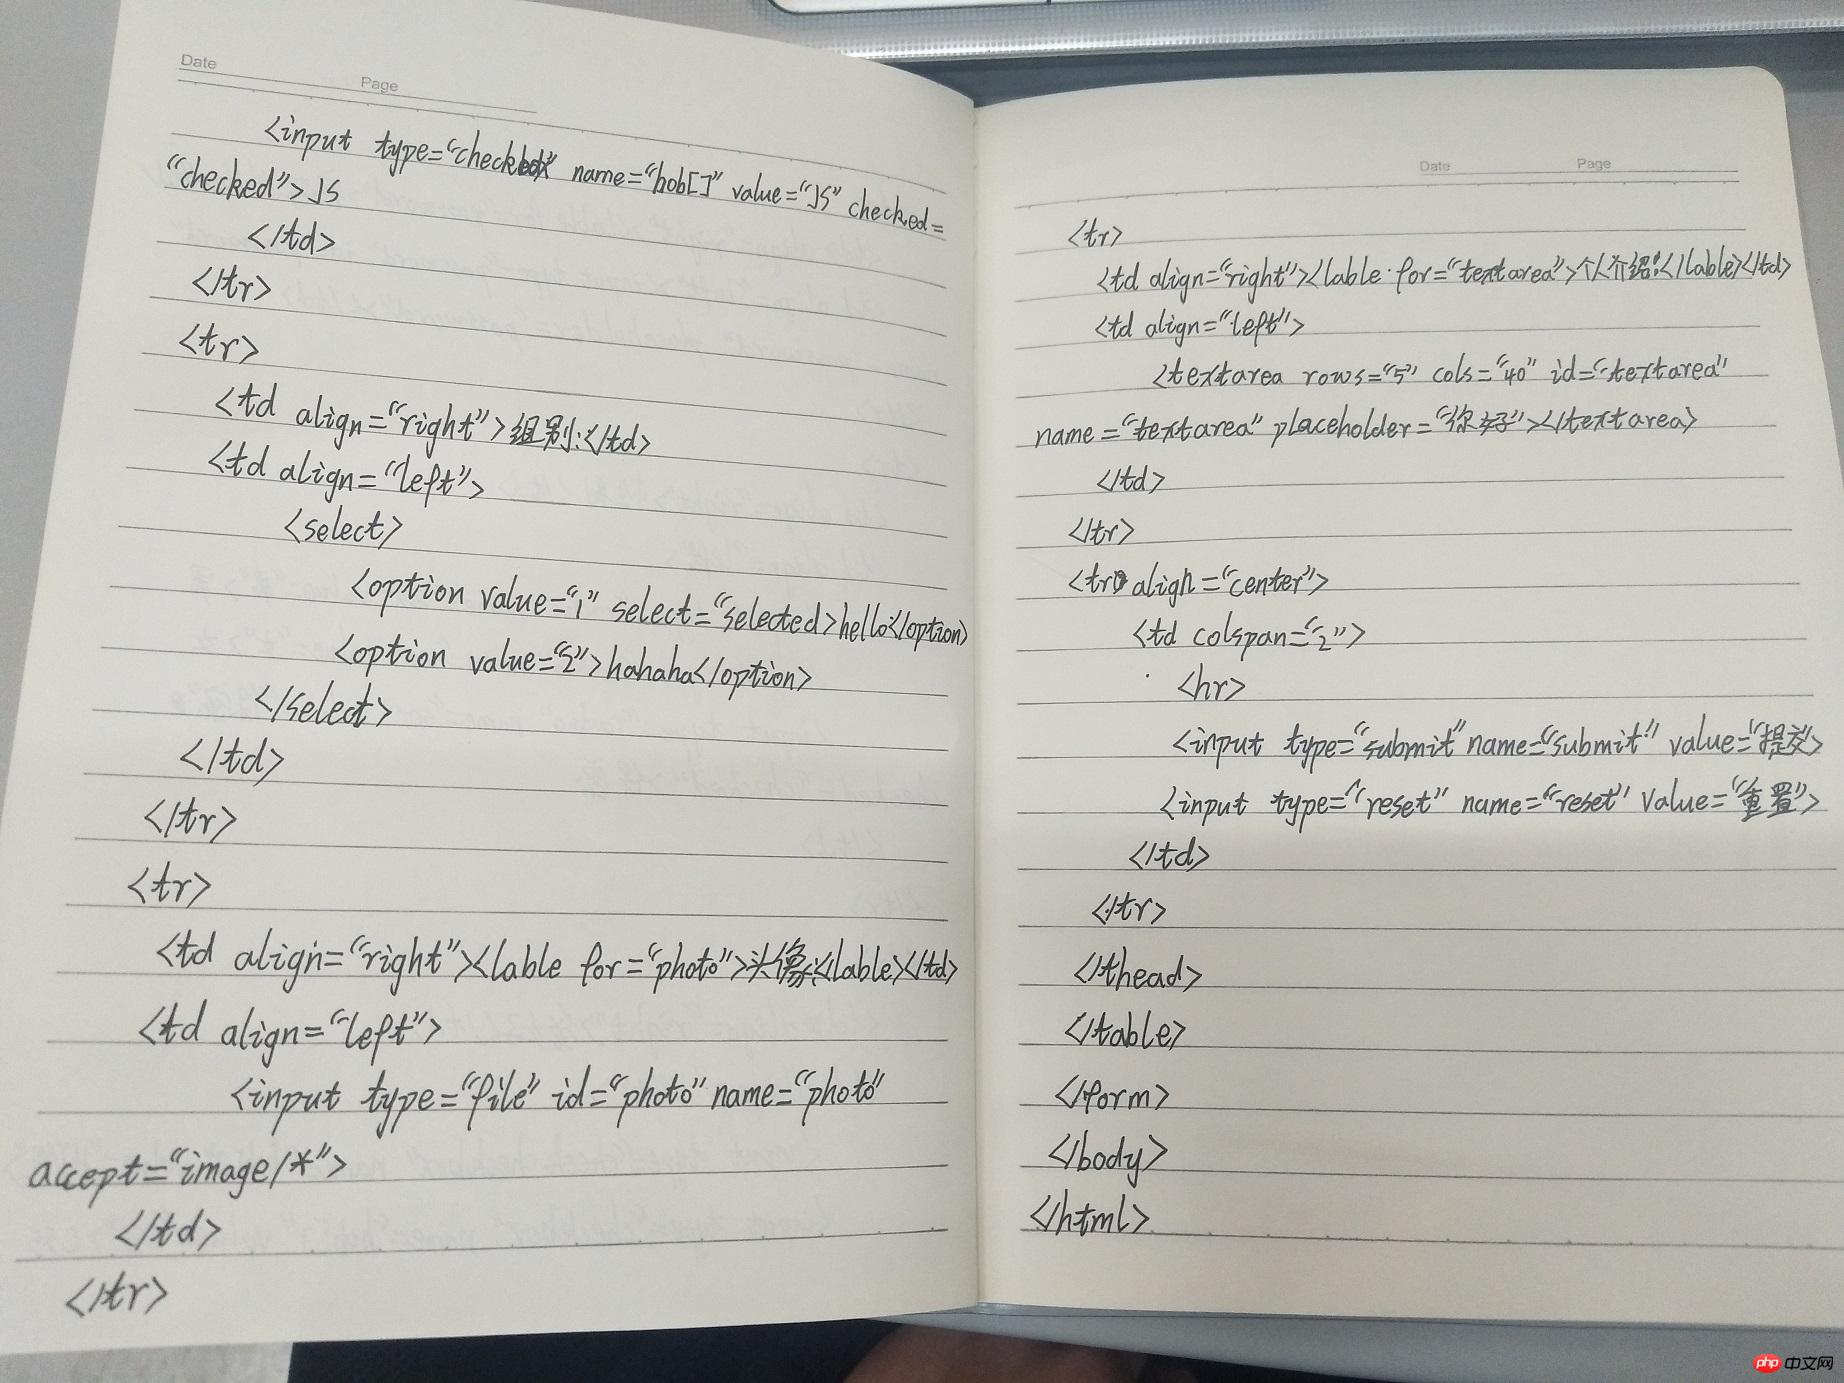 Date
Page
<input type="checkbox" name="hob[]" value="JS" checked=
"checked">JS
</td>
</tr>
<tr>
<td align="right">组别:</td>
<td align="left">
<select>
<option value="1" select="selected>hello</option>
<option value="2">hahaha</option>
</select>
</td>
</tr>
<tr>
<td align="right"><lable for="photo">头像:</lable></td>
<td align="left">
<input type="file" id="photo" name="photo"
accept="image/*">
</td>
</tr>
Date Page
<tr>
<td align="right"><lable for="textarea">个人介绍:</lable></td>
<td align="left">
<textarea rows="5" cols="40" id="textarea"
name="textarea" placeholder="你好"></textarea>
</td>
</tr>
<tr align="center">
<td colspan="2">
<hr>
<input type="submit" name="submit" value="提交>
<input type="reset" name="reset" value="重置">
</td>
</tr>
</thead>
</table>
</form>
</body>
</html>
php 中文网